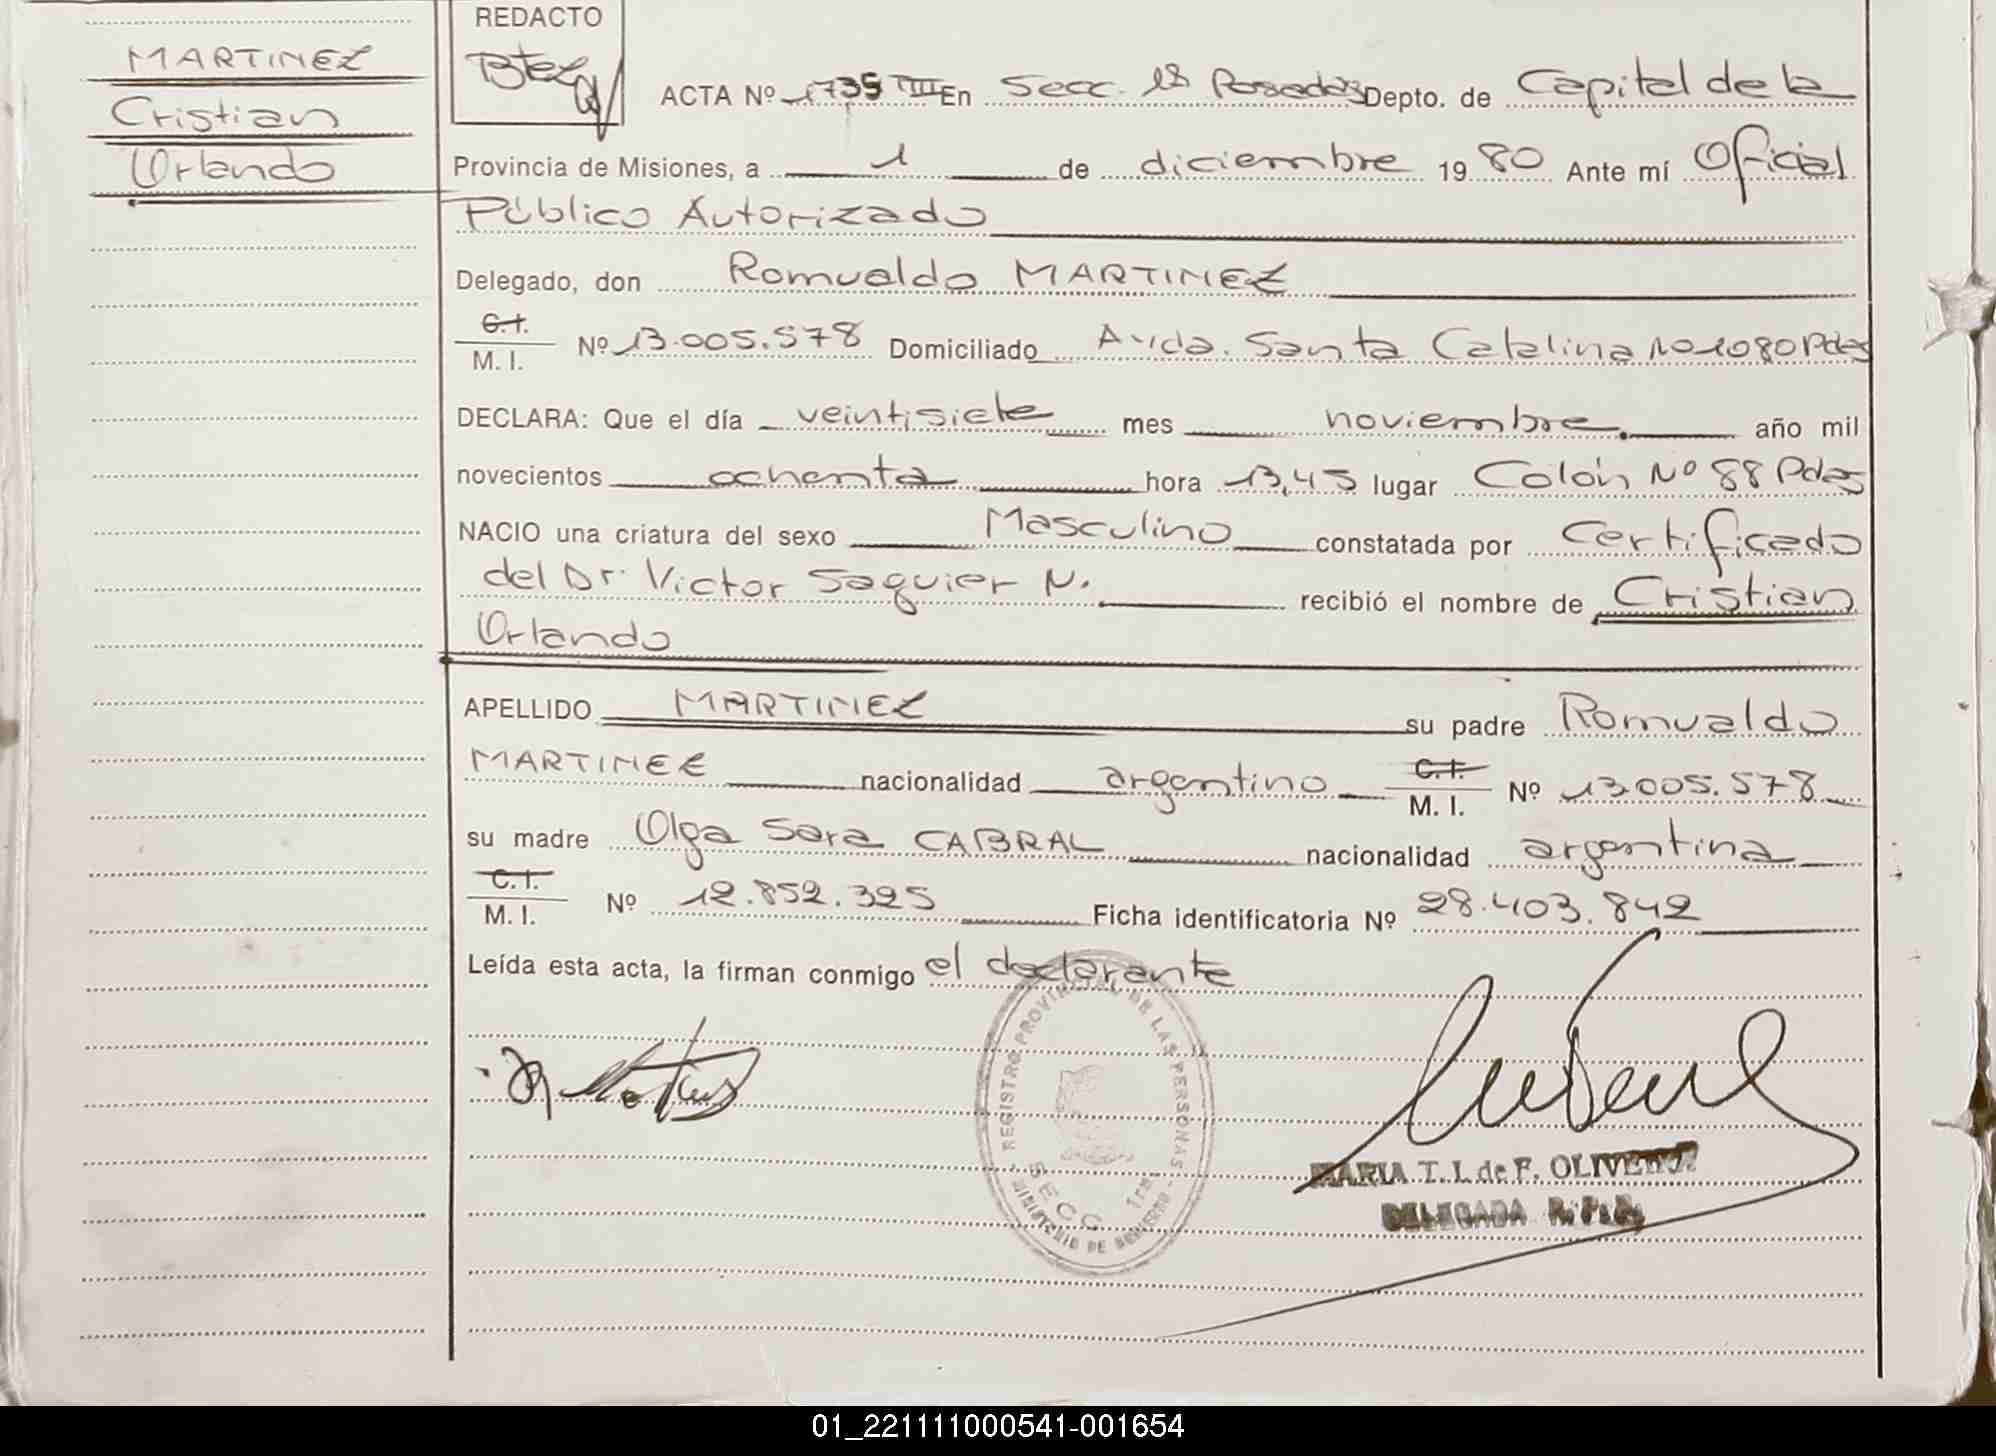 MARTINEZ
Cristian
Orlando
REDACTO
ACTA Nº 1735 III En Secc. 1ª Posadas Depto. de Capital de la
Provincia de Misiones, a 1 de diciembre 1980 Ante mí Oficial
Público Autorizado
Delegado, don Romualdo MARTINEZ
C.I.
M. I. Nº 13.005.578 Domiciliado Avda. Santa Catalina Nº 1080 Pdas
DECLARA: Que el día veintisiete mes noviembre. año mil
novecientos ochenta hora 13,45 lugar Colón Nº 88 Pdas
NACIO una criatura del sexo Masculino constatada por Certificado
del Dr. Victor Saguier N. recibió el nombre de Cristian
Orlando
APELLIDO MARTINEZ su padre Romualdo
MARTINEZ nacionalidad argentino C.I.
M. I. Nº 13.005.578
su madre Olga Sara CABRAL nacionalidad argentina
C.I.
M. I. Nº 12.852.325 Ficha identificatoria Nº 28.403.842
Leída esta acta, la firman conmigo el declarante
REGISTRO PROVINCIAL DE LAS PERSONAS
SECC. 1ra
MINISTERIO DE GOBIERNO
MARIA T. I. de F. OLIVEIRA
DELEGADA R. P. P.
01_221111000541-001654